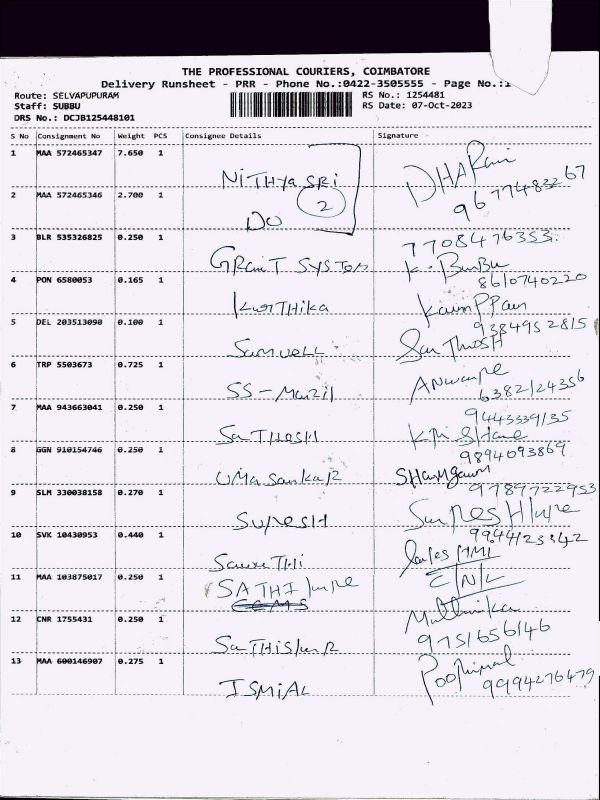 THE PROFESSIONAL COURIERS, COIMBATORE
Delivery Runsheet - PRR - Phone No.:0422-3505555 - Page No.:1
Route: SELVAPUPURAM RS No.: 1254481
Staff: SUBBU RS Date: 07-Oct-2023
DRS No.: DCJB125448101
S No Consignment No Weight PCS Consignee Details Signature
1 MAA 572465347 7.650 1 NITHYA SRI DHARani
2 MAA 572465346 2.700 1 DO 2 9677483267
3 BLR 535326825 0.250 1 GRanT SYSTEM 7708476353.
K. BuBu
4 PON 6580053 0.165 1 KarTHika 8610740220
5 DEL 203513090 0.100 1 SamuELL 9384952815
SanThosH
6 TRP 5503673 0.725 1 SS-
6382124356
7 MAA 943663041 0.250 1 SaTHosH 9443339135
8 GGN 910154746 0.250 1 UMa SankaR 9894093869
SHanMgam
9 SLM 330038158 0.270 1 SuresH 9789722953
10 SVK 10430953 0.440 1 9944123342
11 MAA 103875017 0.250 1 SATHI
12 CNR 1755431 0.250 1
9751656146
13 MAA 600146907 0.275 1 ISMiAL 9994276479